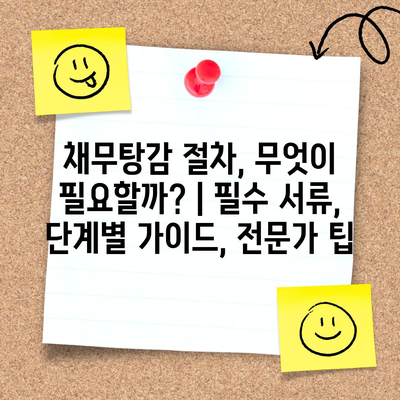 채무탕감 절차, 무엇이
필요할까? | 필수 서류,
단계별 가이드, 전문가 팁